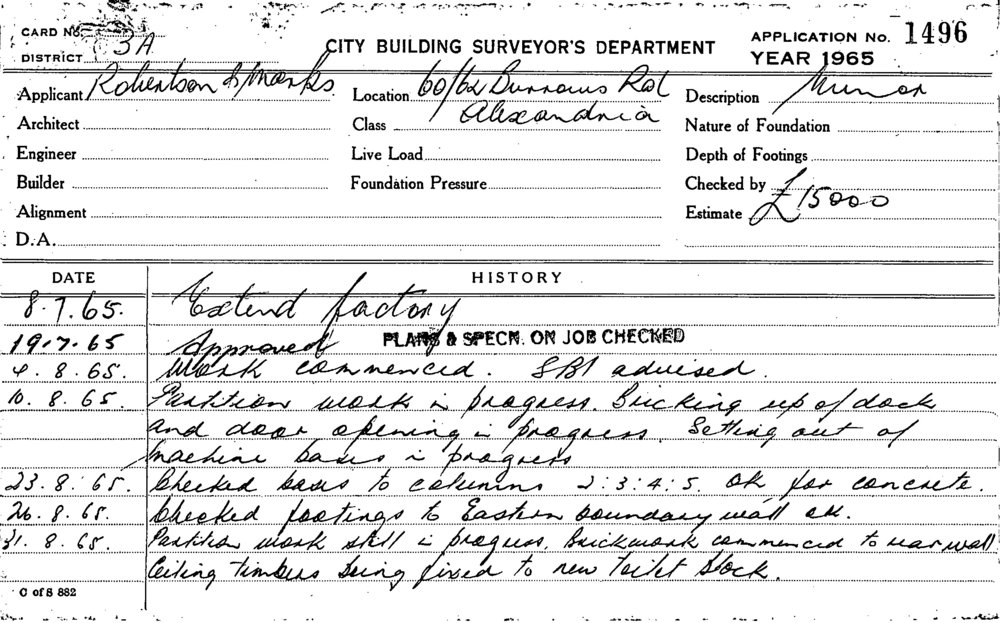 CARD No.
3A
DISTRICT
CITY BUILDING SURVEYOR'S DEPARTMENT
APPLICATION No. 1496
YEAR 1965
Applicant Robertson & Marks
Location 60/62 Burrows Rd
Alexandria
Description Minor
Architect
Class
Nature of Foundation
Engineer
Live Load
Depth of Footings
Builder
Foundation Pressure
Checked by
Alignment
Estimate £15000
D.A.
DATE
HISTORY
8.7.65. Extend factory
19.7.65 Approved PLANS & SPECN. ON JOB CHECKED
4.8.65. Work commenced. SBI advised.
10.8.65. Partition work in progress. Bricking up of dock
and door opening in progress. Setting out of
machine bases in progress
23.8.65. Checked bases to columns 2:3:4:5. OK for concrete.
26.8.65. Checked footings to Eastern boundary wall ok.
31.8.65. Partition work still in progress. Brickwork commenced to rear wall.
Ceiling timbers being fixed to new toilet block.
C of S 882